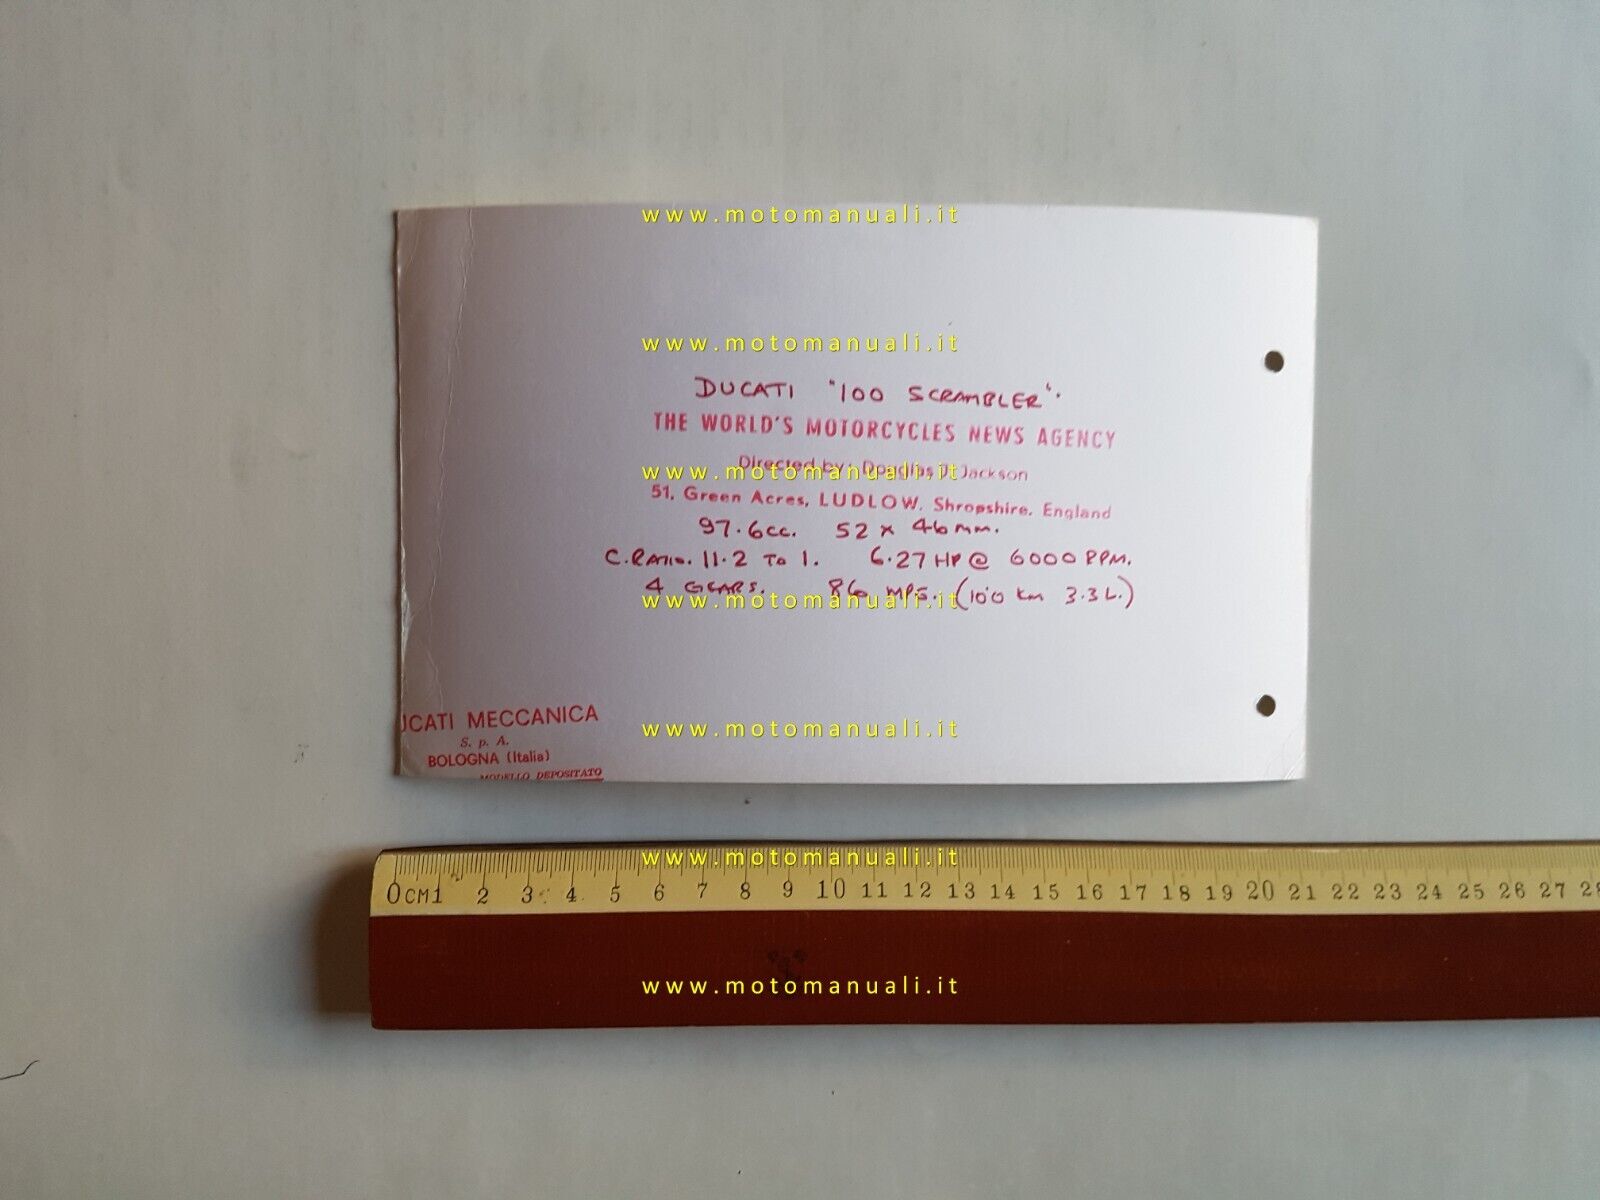 www.motomanuali.it
www.motomanuali.it
DUCATI "100 SCRAMBLER".
THE WORLD'S MOTORCYCLES NEWS AGENCY
Directed by: Douglas J. Jackson
www.motomanuali.it
51, Green Acres, LUDLOW, Shropshire, England
97.6cc. 52 x 46mm.
C.RATIO. 11.2 TO 1. 6.27 HP @ 6000 RPM.
4 GEARS. 86 MPG. (100 km 3.3 L.)
www.motomanuali.it
UCATI MECCANICA
www.motomanuali.it
S. p. A.
BOLOGNA (Italia)
MODELLO DEPOSITATO
www.motomanuali.it
0CM1 2 3 4 5 6 7 8 9 10 11 12 13 14 15 16 17 18 19 20 21 22 23 24 25 26 27 28
www.motomanuali.it